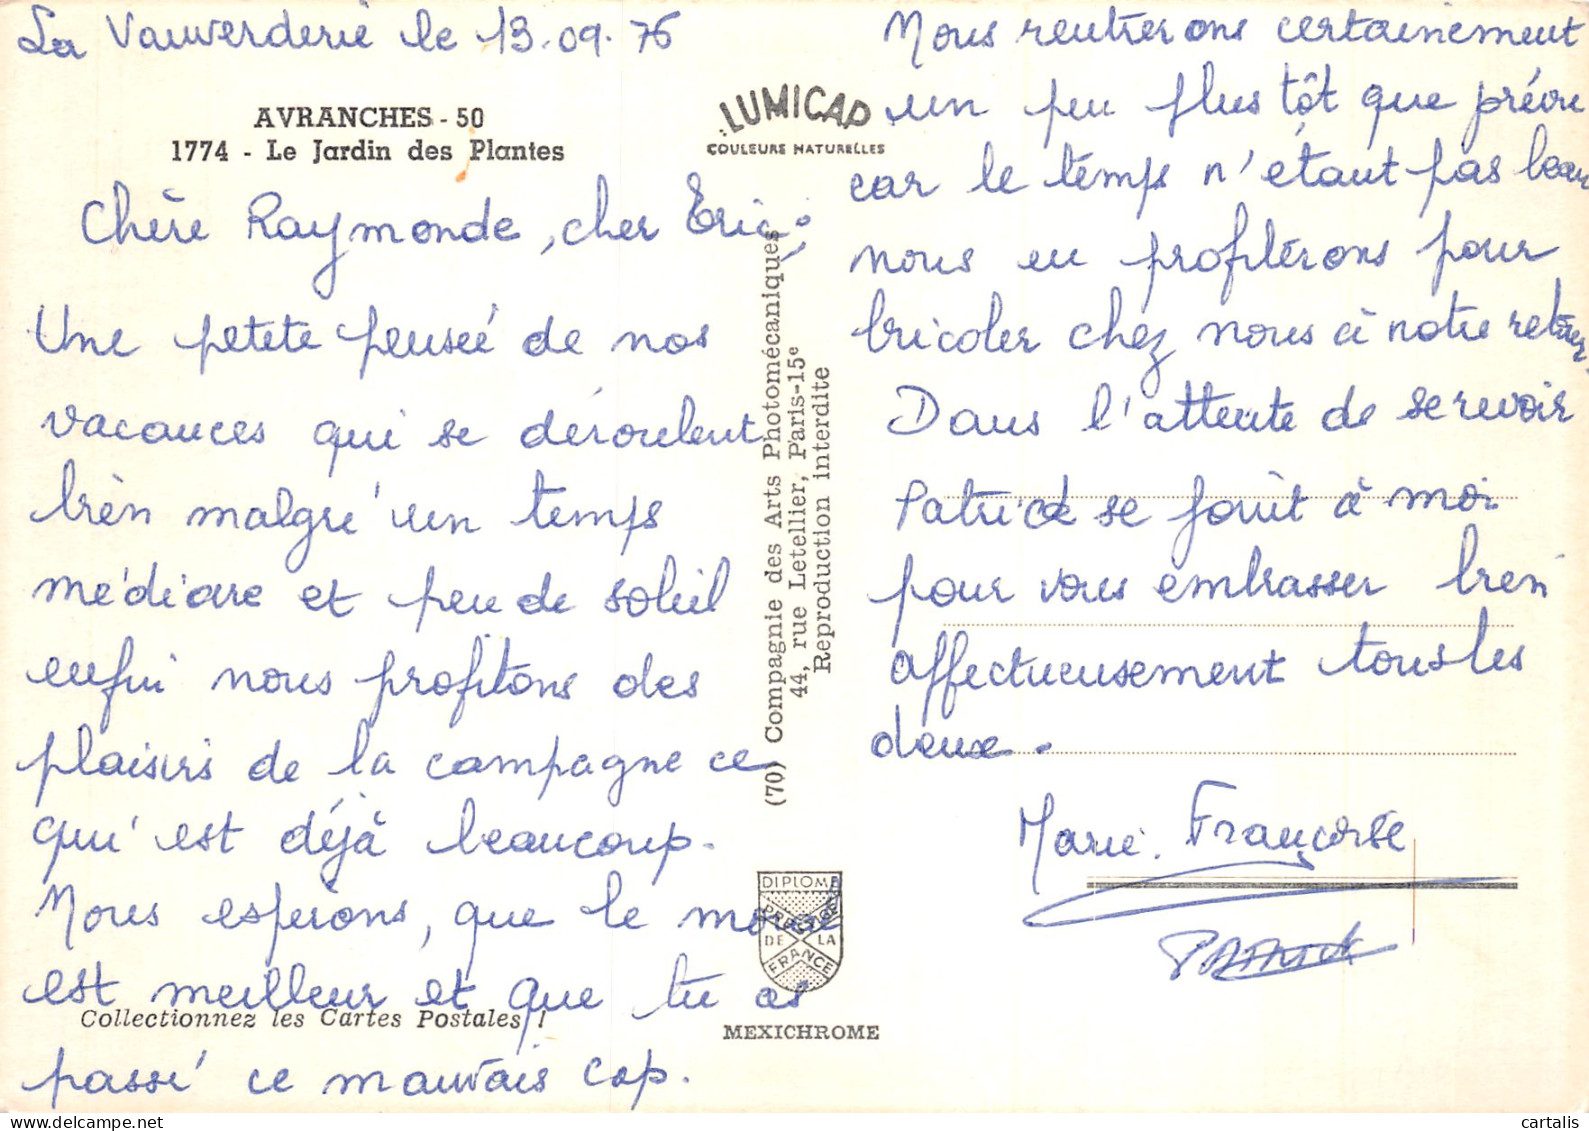 La Vauverderie le 13.09.76
AVRANCHES - 50
1774 - Le Jardin des Plantes
Chère Raymonde, cher Eric,
Une petite pensée de nos
vacances qui se déroulent
bien malgré un temps
médiocre et peu de soleil
enfin nous profitons des
plaisirs de la campagne ce
qui est déjà beaucoup.
Nous espérons, que le moral
est meilleur et que tu as
passé ce mauvais cap.
Collectionnez les Cartes Postales !
LUMICAP
COULEURS NATURELLES
(70) Compagnie des Arts Photomécaniques
44, rue Letellier, Paris-15e
Reproduction interdite
DIPLOME
PRESTIGE
DE LA
FRANCE
MEXICHROME
Nous rentrerons certainement
un peu plus tôt que prévu
car le temps n'étant pas beau
nous en profiterons pour
bricoler chez nous à notre retour.
Dans l'attente de se revoir
Patrick se joint à moi
pour vous embrasser bien
affectueusement tous les
deux.
Marie. Françoise
Patrick
www.delcampe.net
cartalis